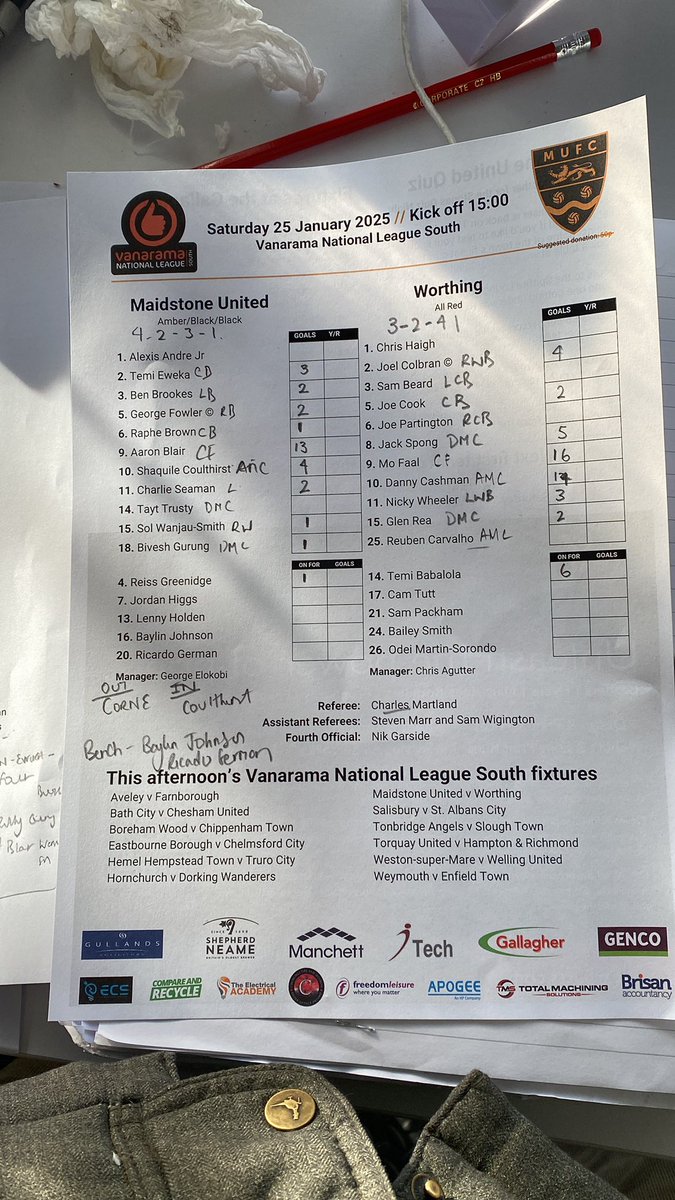 CORPORATE C2 HB
United Quiz
MUFC
Saturday 25 January 2025 // Kick off 15:00
Vanarama National League South
vanarama
NATIONAL LEAGUE SOUTH
Suggested donation: 50p
Maidstone United
Amber/Black/Black
4-2-3-1.
GOALS Y/R
1. Alexis Andre Jr
2. Temi Eweka CD 3
3. Ben Brookes LB 2
5. George Fowler © RB 2
6. Raphe Brown CB 1
9. Aaron Blair CF 13
10. Shaquile Coulthirst AMC 4
11. Charlie Seaman L 2
14. Tayt Trusty DMC
15. Sol Wanjau-Smith RW 1
18. Bivesh Gurung DMC 1
ON FOR GOALS
4. Reiss Greenidge 1
7. Jordan Higgs
13. Lenny Holden
16. Baylin Johnson
20. Ricardo German
Manager: George Elokobi
Worthing
All Red
3-2-41
GOALS Y/R
1. Chris Haigh
2. Joel Colbran © RWB 4
3. Sam Beard LCB
5. Joe Cook CB 2
6. Joe Partington RCB
8. Jack Spong DMC 5
9. Mo Faal CF 16
10. Danny Cashman AMC
11. Nicky Wheeler LWB 3
15. Glen Rea DMC 2
25. Reuben Carvalho AML
ON FOR GOALS
14. Temi Babalola 6
17. Cam Tutt
21. Sam Packham
24. Bailey Smith
26. Odei Martin-Sorondo
Manager: Chris Agutter
OUT IN
CORNE Coulthurst
Bench - Baylin Johnson
Ricardo German
Referee: Charles Martland
Assistant Referees: Steven Marr and Sam Wigington
Fourth Official: Nik Garside
This afternoon's Vanarama National League South fixtures
Aveley v Farnborough
Bath City v Chesham United
Boreham Wood v Chippenham Town
Eastbourne Borough v Chelmsford City
Hemel Hempstead Town v Truro City
Hornchurch v Dorking Wanderers
Maidstone United v Worthing
Salisbury v St. Albans City
Tonbridge Angels v Slough Town
Torquay United v Hampton & Richmond
Weston-super-Mare v Welling United
Weymouth v Enfield Town
GULLANDS
SINCE 1698
SHEPHERD
NEAME
BRITAIN'S OLDEST BREWER
Manchett
iTech
Gallagher
GENCO
ECS
COMPARE AND
RECYCLE
The Electrical
ACADEMY
freedomleisure
where you matter
APOGEE
An HP Company
TMS TOTAL MACHINING
SOLUTIONS
Brisan
accountancy